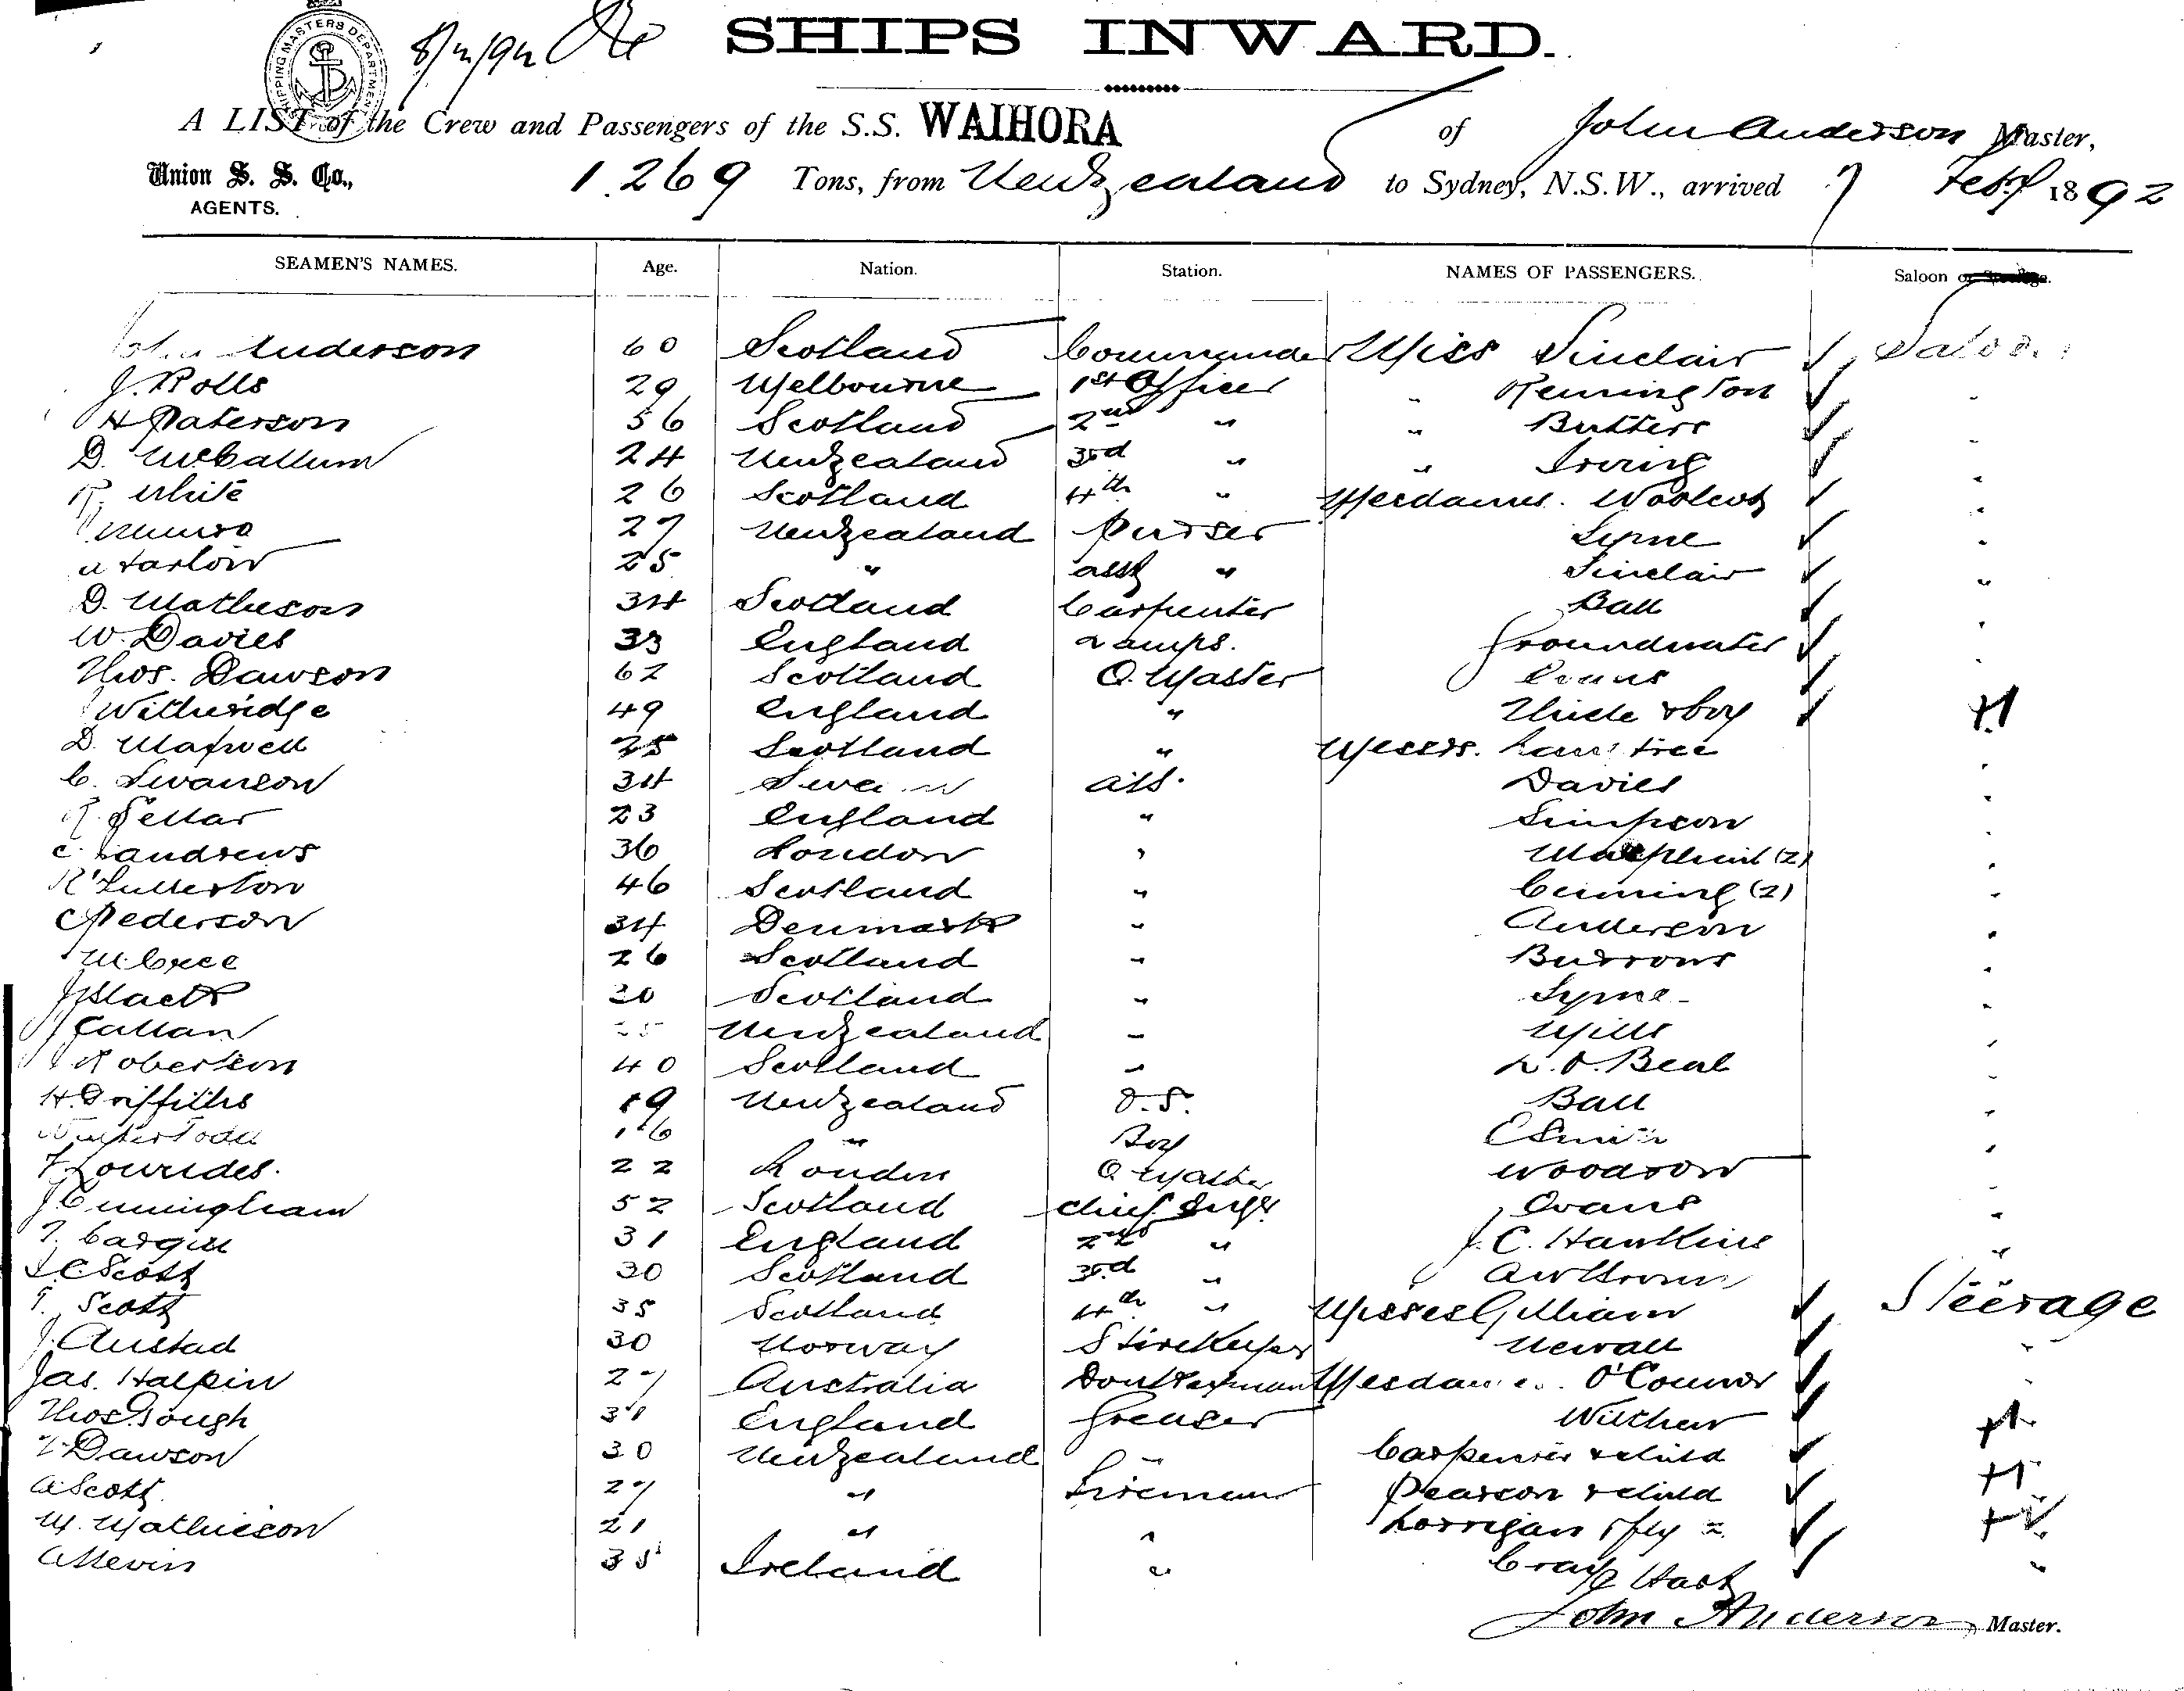 SHIPPING MASTERS DEPARTMENT
SHIPS INWARD.
A LIST of the Crew and Passengers of the S.S. WAIHORA of John Anderson Master,
Union S. S. Co., AGENTS. 1.269 Tons, from New Zealand to Sydney, N.S.W., arrived 7 Feby 1892
SEAMEN'S NAMES. Age. Nation. Station. NAMES OF PASSENGERS. Saloon or Steerage.
John Anderson 60 Scotland Commander Miss Sinclair Saloon
J. Rolls 29 Melbourne 1st Officer " Remington "
H Paterson 56 Scotland 2nd " " Butters "
D. McCallum 24 New Zealand 3rd " " Irving "
R. White 26 Scotland 4th " Mesdames. Woolcot "
Munro 27 New Zealand Purser Syme "
Harlow 25 " asst " Sinclair "
D. Matheson 34 Scotland Carpenter Ball "
W. Davies 33 England Lamps. Groundwater "
Thos. Dawson 62 Scotland Q. Master Evans "
Witheridge 49 England "
D. Maxwell 25 Scotland " Messrs. "
C. Swanson 34 Sweden A.B. Davies "
Sellar 23 England " Simpson "
C. Andrews 36 London " (2) "
R Fullerton 46 Scotland " Cuming (2) "
C Pederson 34 Denmark " Anderson "
McCree 26 Scotland " Burrows "
J Black 30 Scotland " Syme "
J Callan 25 New Zealand " Mills "
Robertson 40 Scotland " L. O. Beal "
H. Griffiths 19 New Zealand O.S. Ball "
16 " Boy E Smith "
22 London Q. Master Woodrow "
J Cunningham 52 Scotland Chief Engr. Evans "
T. Cargill 31 England 2nd " J. C. Hawkins "
J. C. Scott 30 Scotland 3rd " A W Brown "
T. Scott 35 Scotland 4th " Misses Gilliam Steerage
J. Austad 30 Norway Storekeeper Newall "
Jas. Halpin 27 Australia Donkeyman Mesdames. O'Connor "
Thos. Gough 31 England Greaser
T. Dawson 30 New Zealand " Carpenter & child
A Scott 27 " Fireman Pearson & child
M. Mathieson 21 " "
A Nevin 35 Ireland " Craig "
Hart
John Anderson, Master.